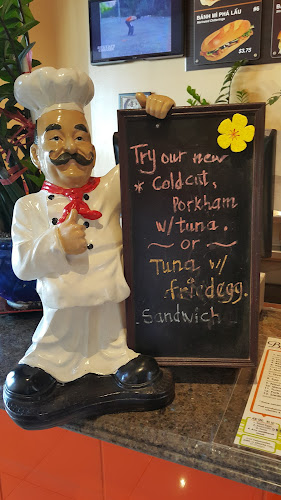 BÁNH MÌ PHÁ LẤU #6
$3.75
Try our new
* Coldcut,
Porkham
w/tuna.
~ or ~
Tuna w/
friedegg.
Sandwich